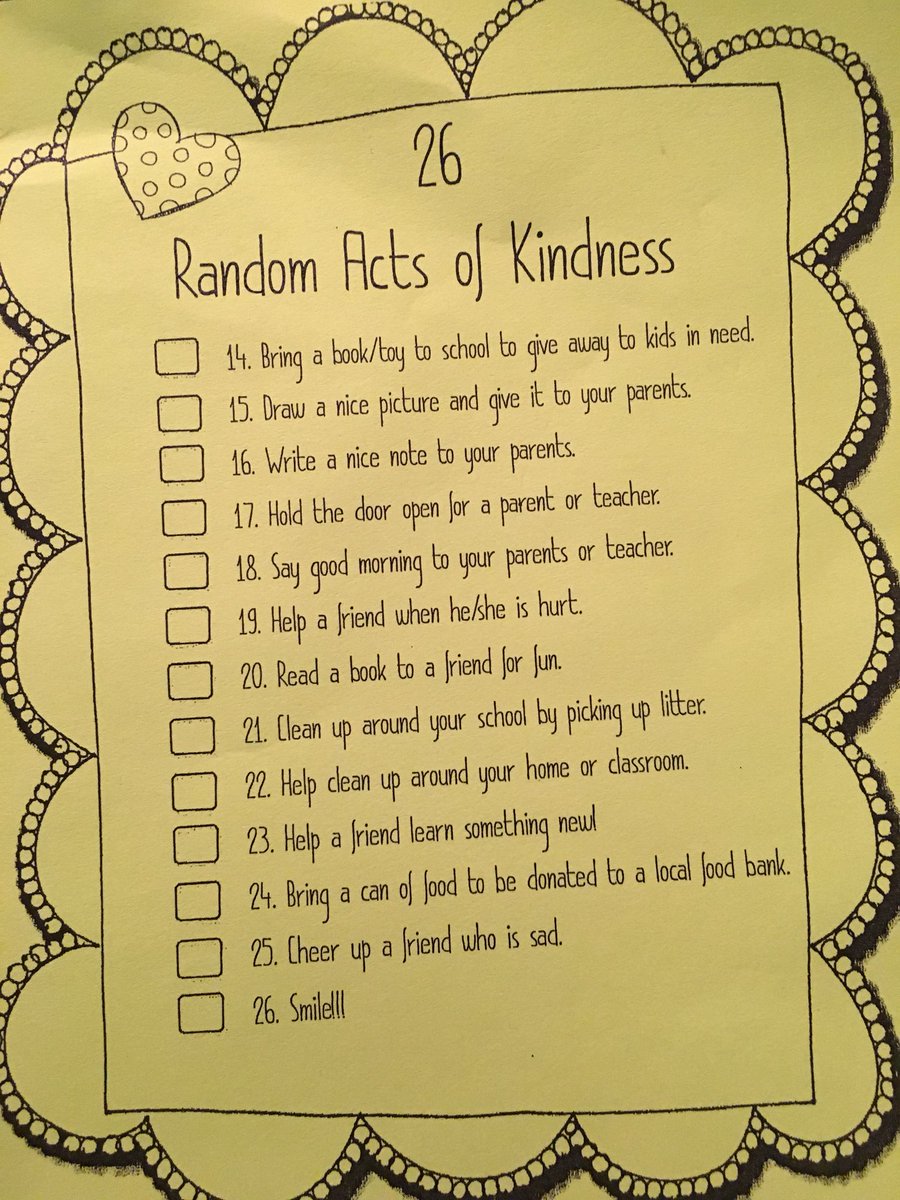 26
Random Acts of Kindness
14. Bring a book/toy to school to give away to kids in need.
15. Draw a nice picture and give it to your parents.
16. Write a nice note to your parents.
17. Hold the door open for a parent or teacher.
18. Say good morning to your parents or teacher.
19. Help a friend when he/she is hurt.
20. Read a book to a friend for fun.
21. Clean up around your school by picking up litter.
22. Help clean up around your home or classroom.
23. Help a friend learn something new!
24. Bring a can of food to be donated to a local food bank.
25. Cheer up a friend who is sad.
26. Smile!!!